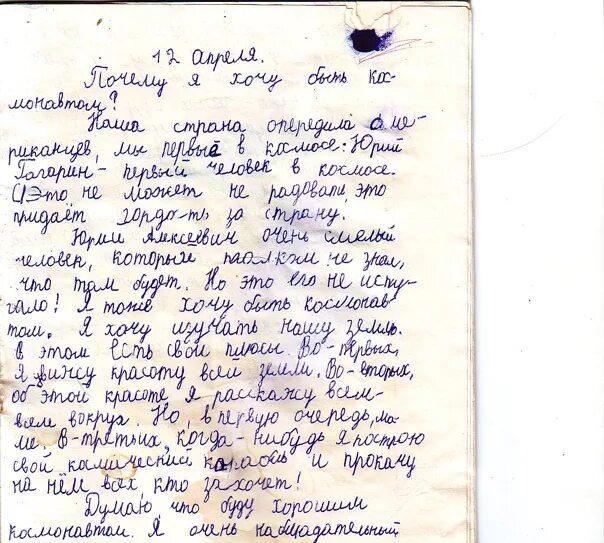 12 Апреля.
Почему я хочу быть кос-
монавтом?
Наша страна опередила аме-
риканцев, мы первые в космосе: Юрий
Гагарин - первый человек в космосе.
Это не может не радовать, это
придаёт гордо-ть за страну.
Юрий Алексеевич очень смелый
человек, который не знал,
что там будет. Но это его не испу-
гало! Я тоже хочу быть космонав
том. Я хочу изучать нашу землю.
В этом есть свои плюсы. Во-первых,
Я вижу красоту всей земли. Во-вторых,
об этой красоте я расскажу всем-
всем вокруг. Но, в первую очередь, ма-
ме. В-третьих, когда-нибудь я построю
свой космический карабль и прокачу
на нём всех кто захочет!
Думаю, что буду хорошим
космонавтом. Я очень наблюдательный